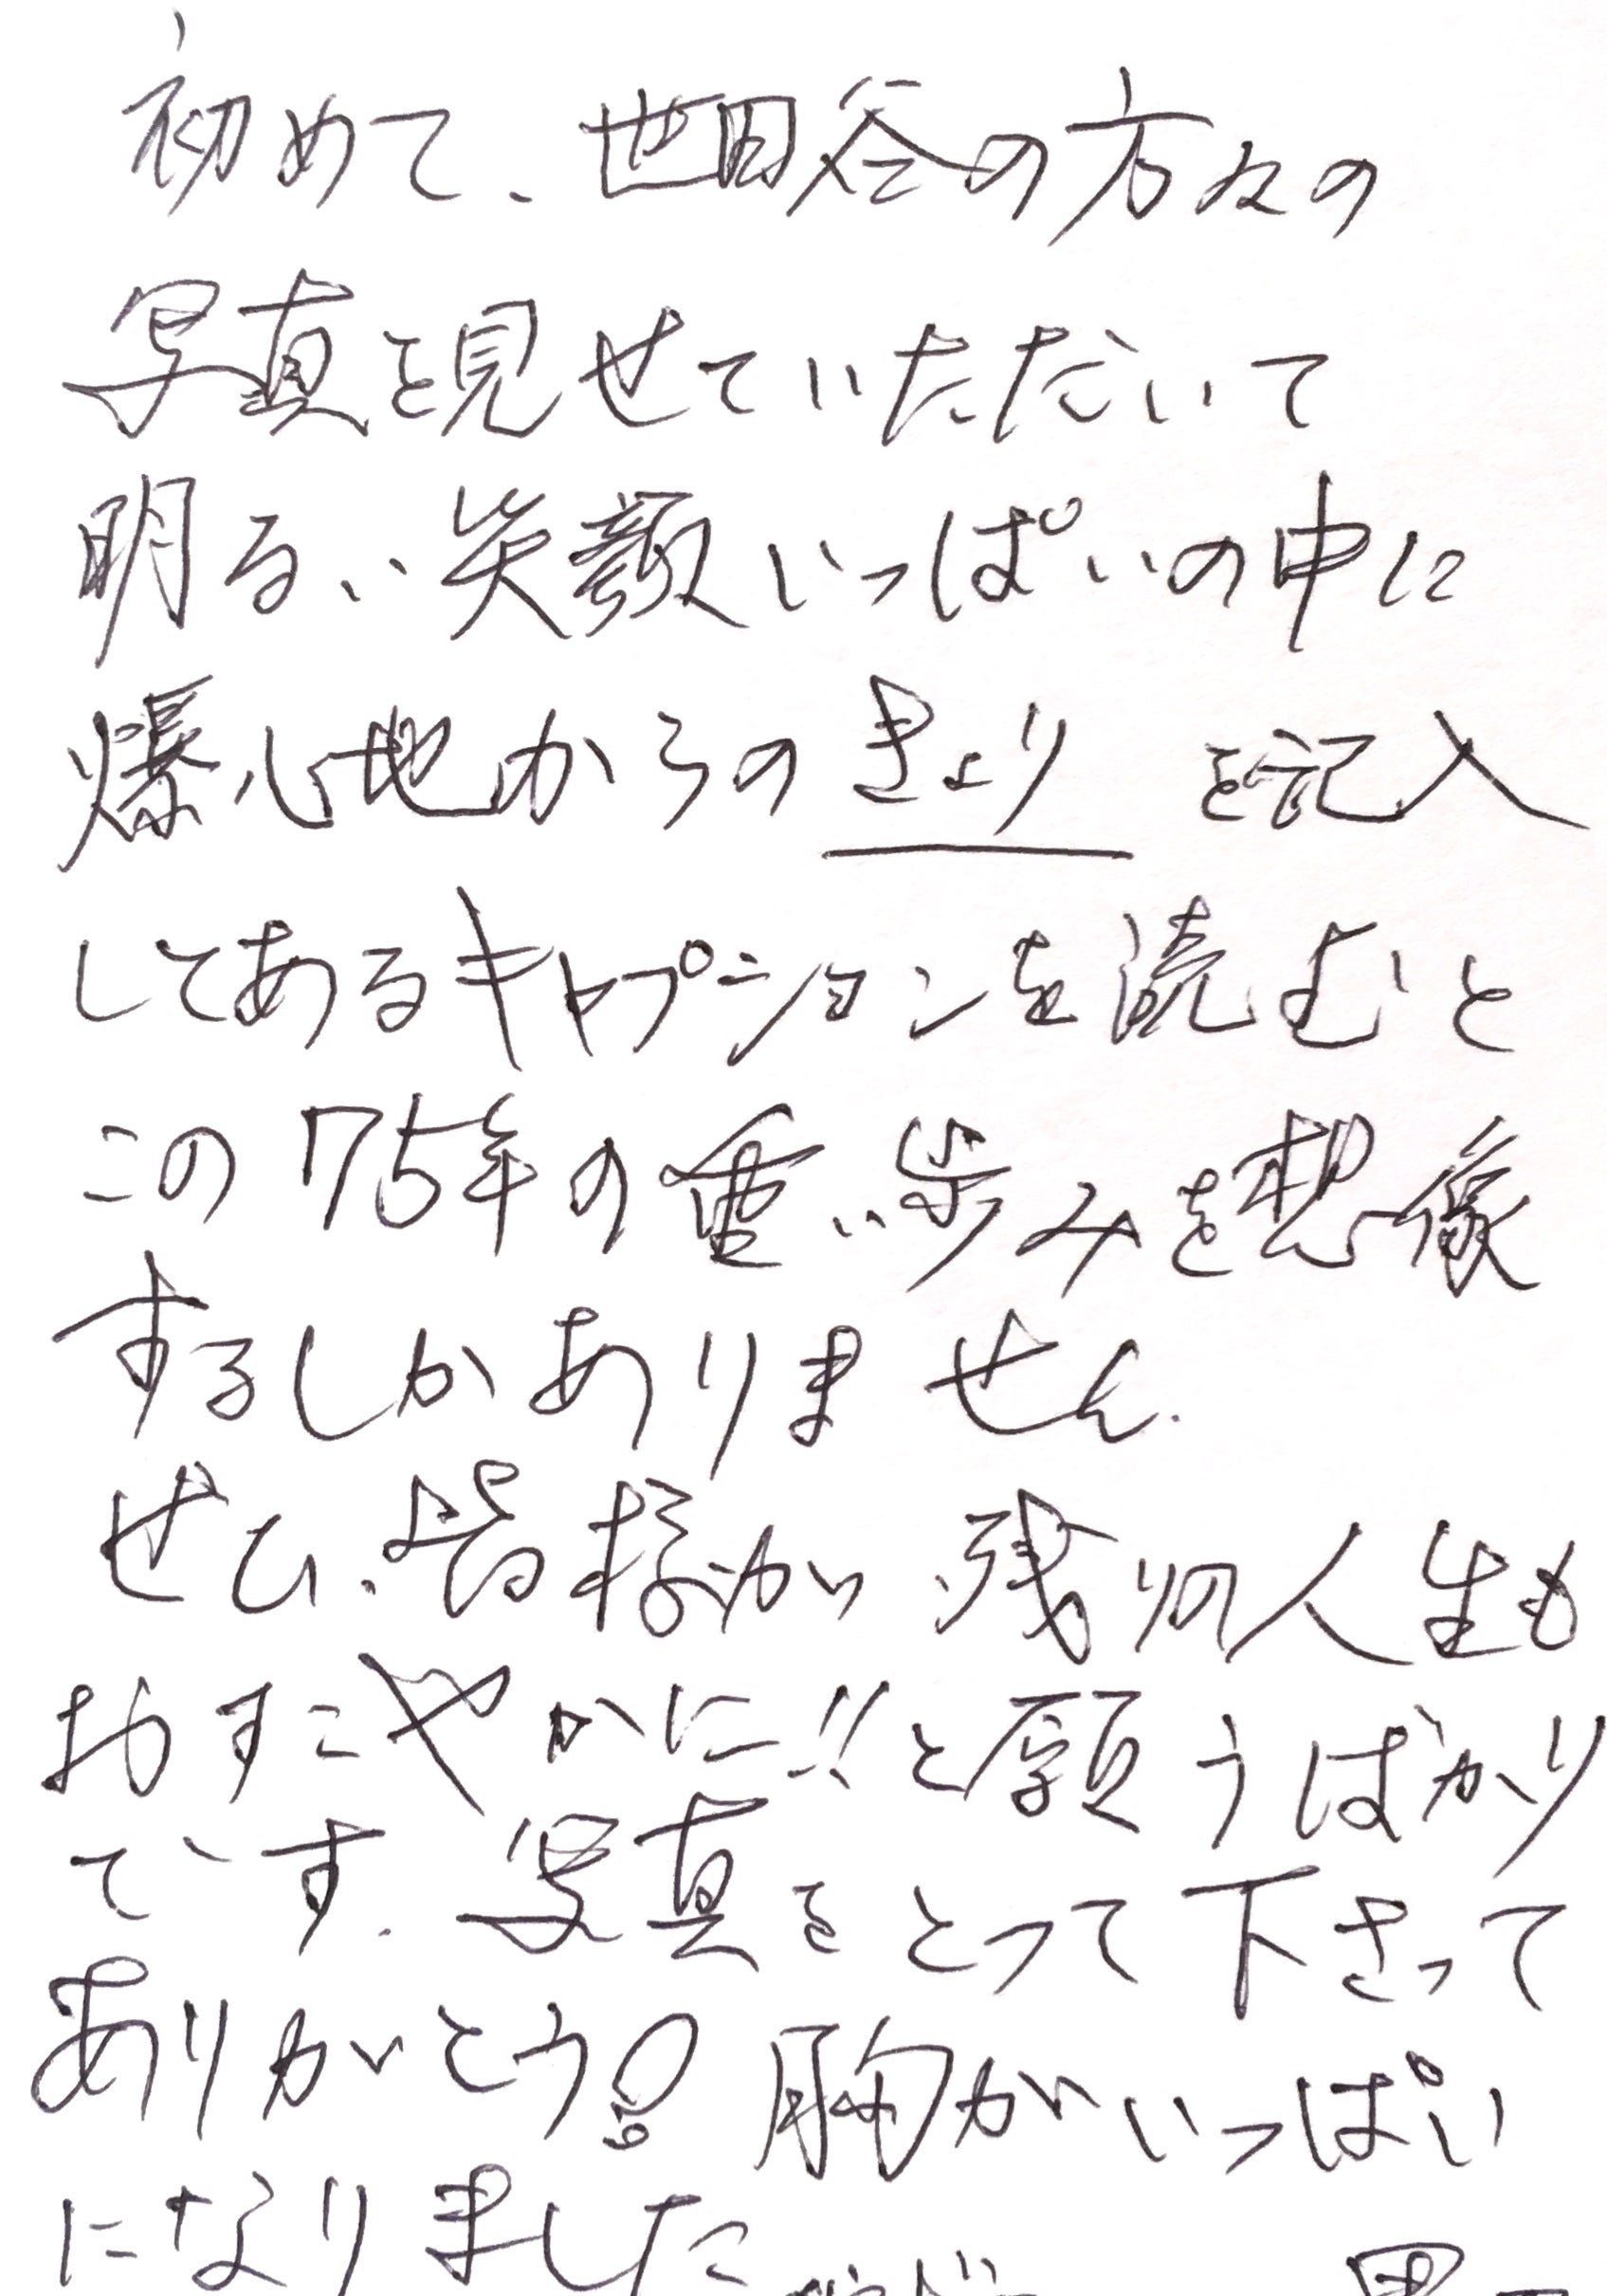 初めて、世田谷の方々の
写真を見せていただいて
明るい笑顔いっぱいの中に
爆心地からのきょりを記入
してあるキャプションを読むと
この75年の重い歩みを想像
するしかありません.
ぜひ、皆様が残りの人生も
おすこやかに!!と願うばかり
です.写真をとって下さって
ありがとう!胸がいっぱい
になりました